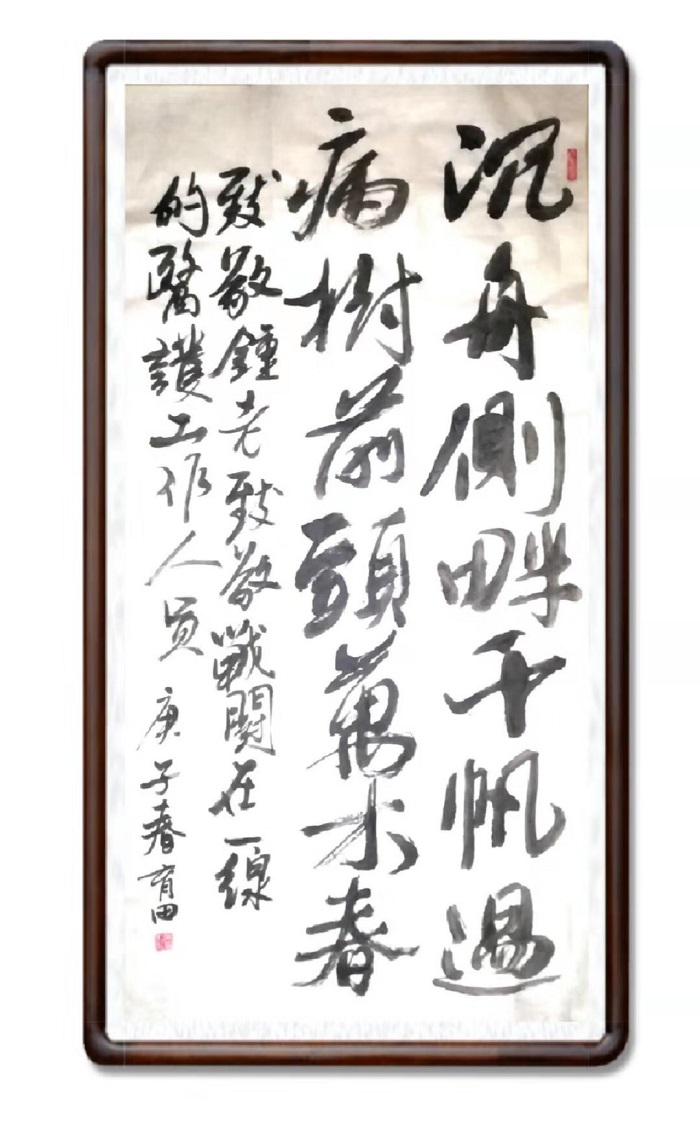 沉舟側畔千帆過
病樹前頭萬木春
致敬鍾老致敬戰鬪在一線
的醫護工作人員 庚子春 育田